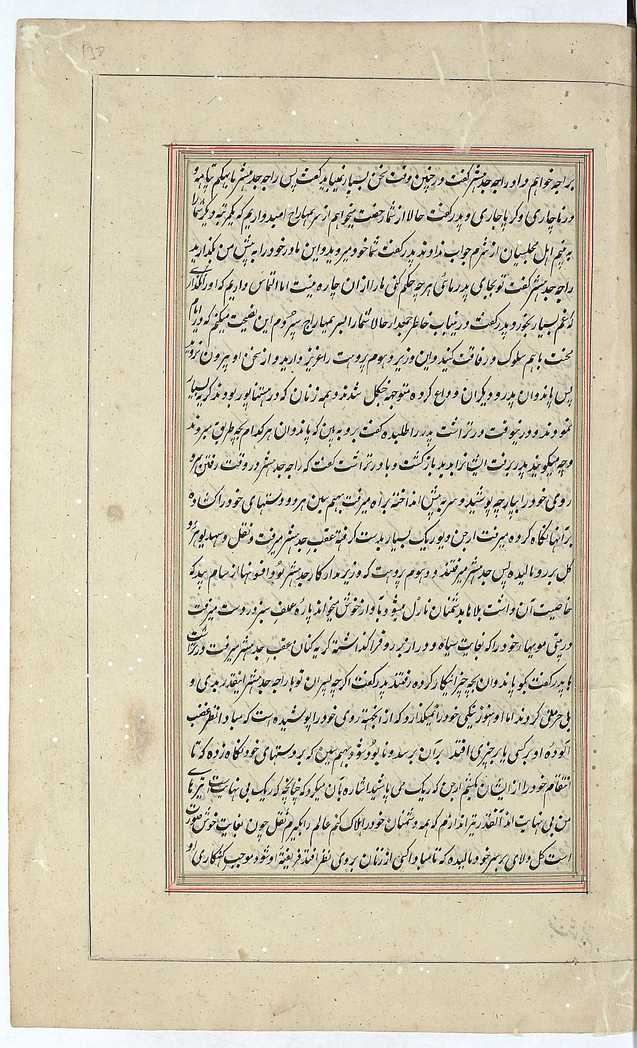 براجه خواهم داد و راجه جدهشتر گفت درچنین وقت سخن بسیار نمیباید گفت پس راجه جدهشتر
در ناچاری و پدر گفت حالا از شما رخصت میخواهم از سر مهاراج امیدواریم که یکمرتبه دیگر شما را
به بینم اهل مجلس از شرم جواب نداوند پدر گفت شما خود میروید و این مادر خود را به پیش من بگذارید
راجه جدهشتر گفت تو بجای پدر مائی هرچه حکم کنی ما را از ان چاره نیست اما التماس داریم که او را نگذاری
که غم بسیار بخورد پدر گفت حالا شما را ای مهاراج این نصیحت میکنم که در ایام
محنت باهم سلوک و رفاقت کنید و این وزیر دهوم پروهت را عزیز دارید و از سخن او بیرون نروید
پس پاندوان پدر و دیگران وداع کرده متوجه جنگل شدند و همه زنان که در هستناپور بودند گریه بسیار
نمودند و درینوقت درتراشت پدر را طلبیده گفت برو به بین که پاندوان هرکدام بچه طریق میروند
وچه میگویند پدر برفت ایشانرا بدید بازگشت و با درتراشت گفت که راجه جدهشتر در وقت رفتن
روی خود را بپارچه پوشید و سر به پیش انداخته براه میرفت بهیم سین هر دو دستهای خود را کشاده
برانها نگاه کرده میرفت ارجن دیو ریک بسیار بدست گرفته عقب جدهشتر میرفت و نقل و سهدیو هر دو
گل بر رو مالیده پس جدهشتر میرفتند و دهوم پروهت که وزیر مدار کار جدهشتر بود افسونها از سام بید که
خاصیت آن داشت بلاها بدشمنان نازل میشود بآواز خوش میخواند پاره علف سبز در دست میرفت
درپتی مویهای خود را که بغایت سیاه و دراز بر رو فرا گذاشته گریه کنان عقب جدهشتر میرفت درتراشت
با پدر گفت بگو پاندوان بچه جهة اینکار کرده رفتند پدر گفت اگرچه پسران تو با راجه جدهشتر اینقدر بدی و
بی حرمتی کردند اما او هنوز نیکی خود را نمیگذارد که از انجهة روی خود را پوشیده است که مبادا نظر غضب
آلوده او بر کسی یا بر چیزی افتد بر آن برسد و نابود شود بهیم سین که بر دستهای خود نگاه زده که تا
انتقام خود را از ایشان نکشم ارجن که ریک می پاشید اشاره بآن میکرد که چنانچه که ریک بی نهایت است تیرهای
من بی نهایت اند آنقدر تیر اندازم که همه دشمنان خود را هلاک کنم عالم را بگیرم نقل چون بغایت خوش صورت
است گل و لای بر سر خود مالیده که تا مبادا کسی از زنان بروی نظر افتد فریفتهٔ او شود و موجب گنهکاری او